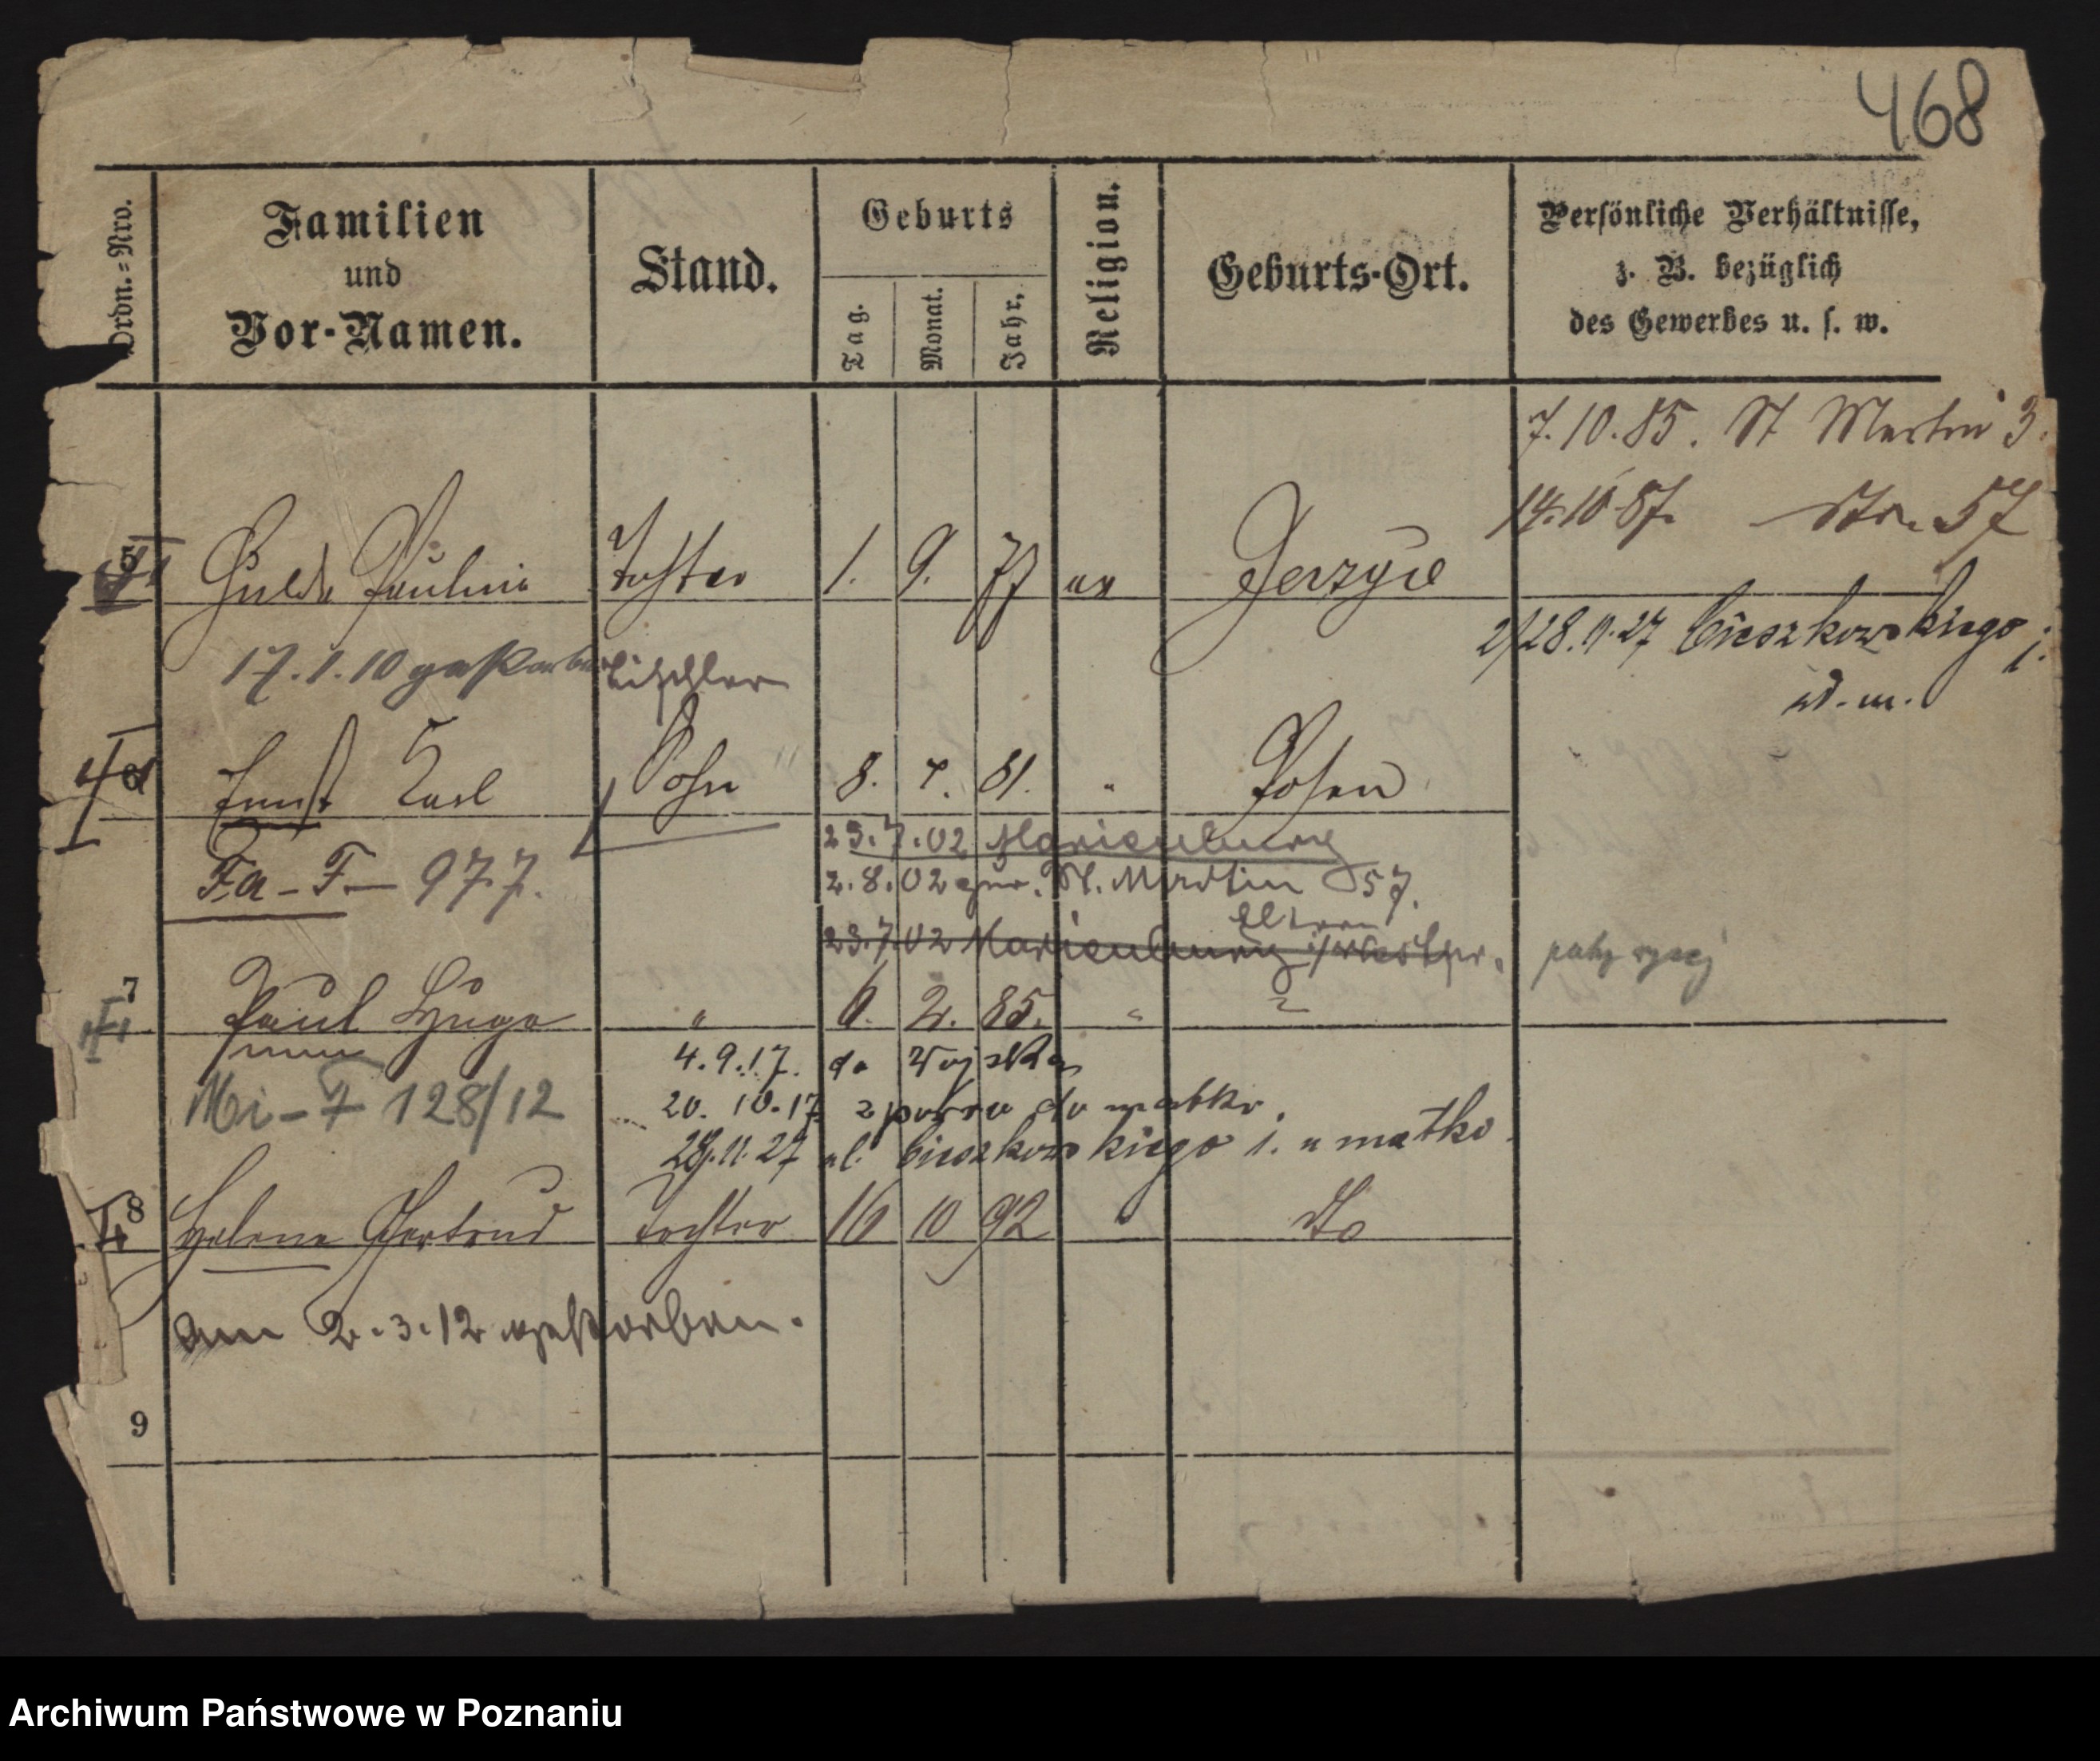 468
Ordn.=Nro.
Familien
und
Vor-Namen.
Stand.
Geburts
Tag.
Monat.
Jahr.
Religion.
Geburts-Ort.
Persönliche Verhältnisse,
z. B. bezüglich
des Gewerbes u. s. w.
7.10.85. St Martin 3.
14.10.87. Str. 57
5 Hulda Pauline Tochter 1. 9. 77 ev Jerzyce
2/28.11.27 Cieszkowskiego 1.
17.1.10 gestorben
Tischler
6 Ernst Karl Sohn 8. 7. 81. " Posen
23.7.02 Marienburg
Fa-F- 977.
2.8.02 zur. St. Martin 57.
Eltern
23.7.02 Marienburg i/Westpr.
7 Paul Hugo " 6. 2. 85. "
4.9.17. do wojska
Mi-F 128/12
20. 10.17 z powro do matki.
28.11.27 ul. Cieszkowskiego 1. u matki
8 Helene Gertrud Tochter 16 10 92 " Do
am 2.3.12 gestorben.
9
Archiwum Państwowe w Poznaniu